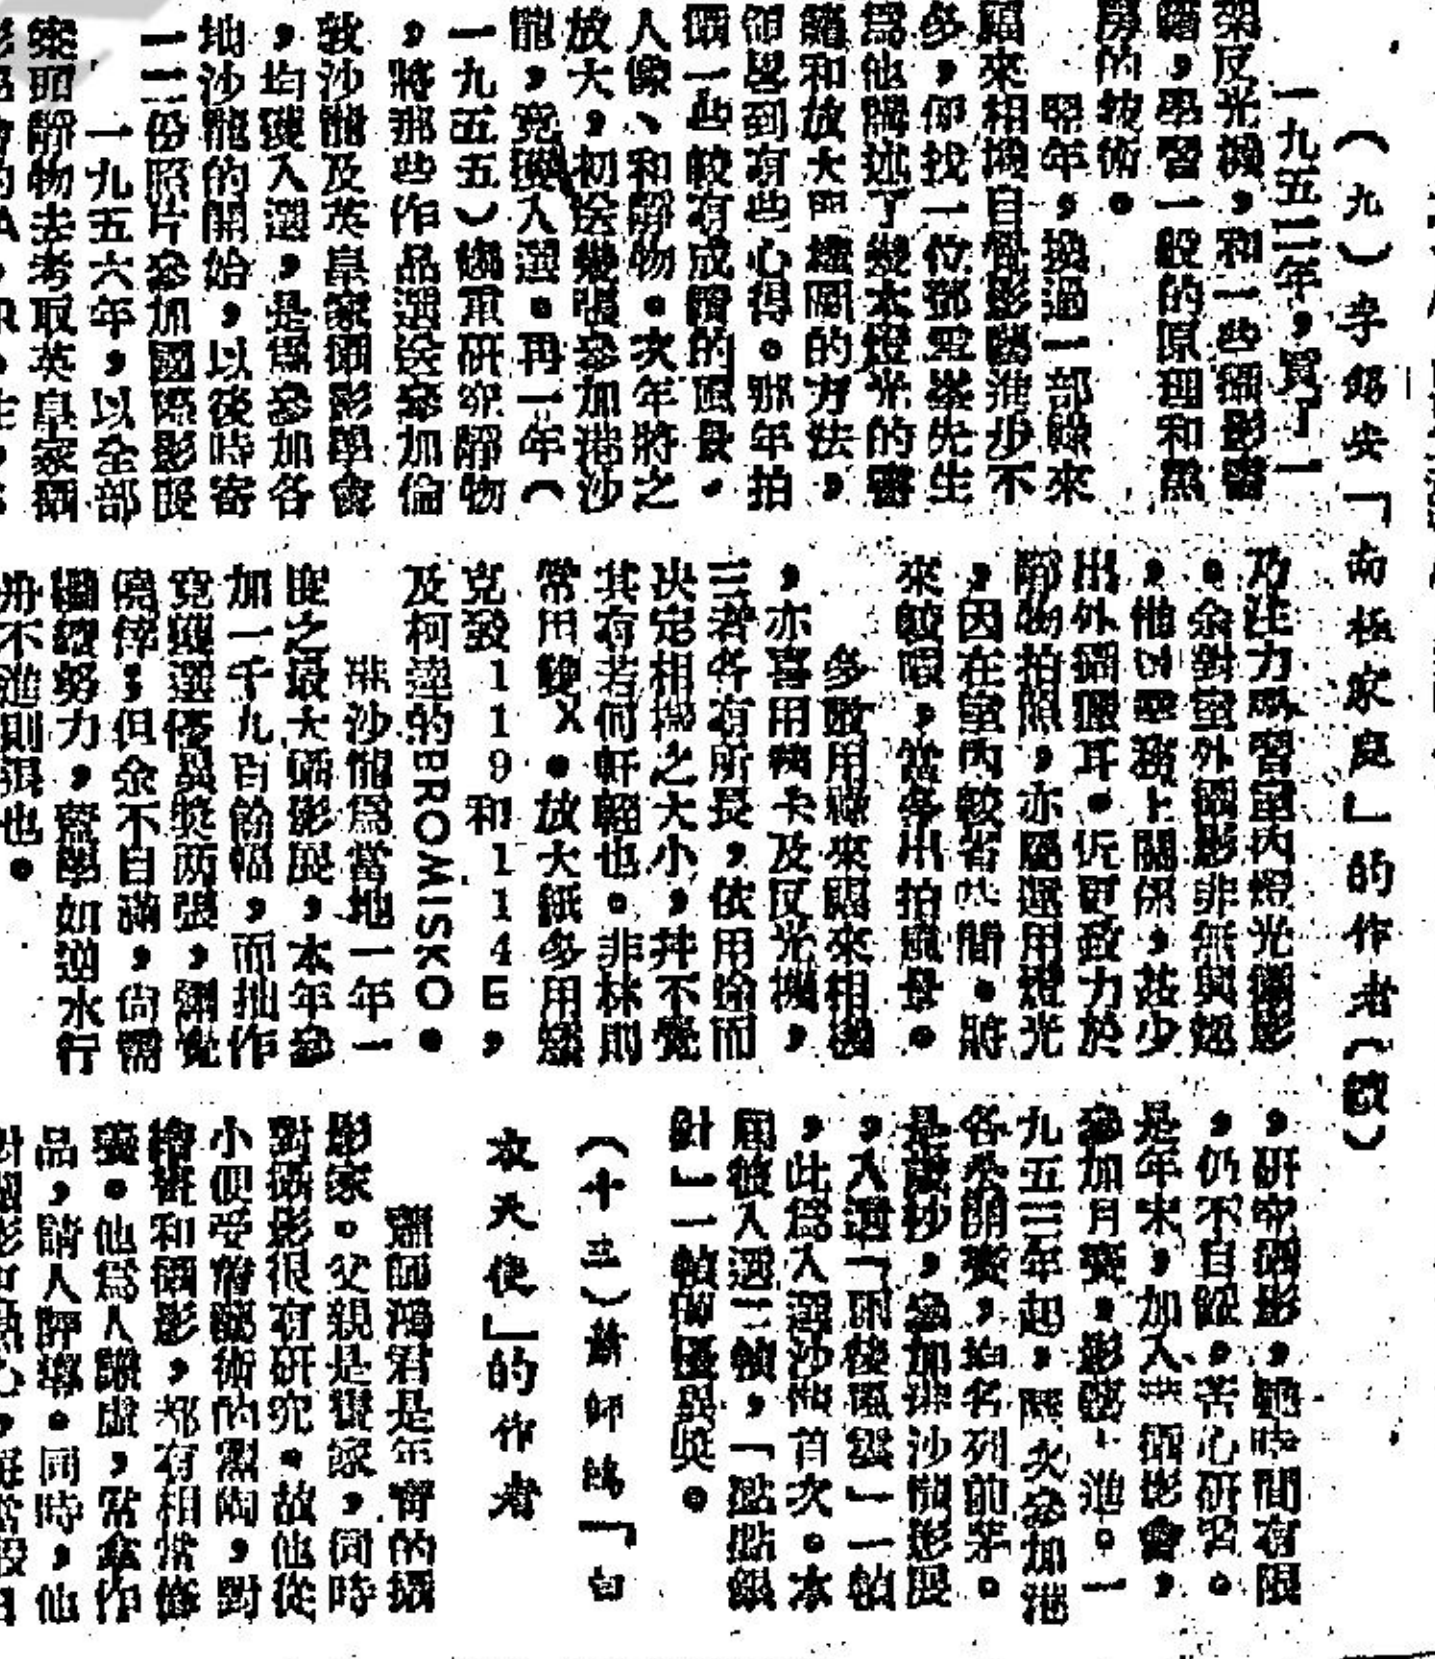 （九）李錫安「南極家庭」的作者（歡）
一九五二年，買了一
架反光機，和一些攝影書
籍，學習一般的原理和黑
房的技術。
翌年，換過一部祿來
福來相機自覺影藝進步不
多，便找一位鄧雪峯先生
爲他講述了幾本燈光的書
籍和放大四檔開的方法，
領畧到有些心得。那年拍
攝一些較有成績的風景，
人像、和靜物。次年將之
放大，初送幾張參加港沙
龍，竟獲入選。再一年（
一九五五）偏重研究靜物
，將那些作品選送參加倫
敦沙龍及英皇家攝影學會
，均獲入選，是爲參加各
地沙龍的開始，以後時寄
一二份照片參加國際影展
一九五六年，以全部
案頭靜物去考取英皇家攝
乃注力於習室內燈光攝影
。余對室外攝影非無興趣
，惟以業務上關係，茲少
出外攝獵耳。近更致力於
靜物拍照，亦屬運用燈光
，因在室內較省時間。將
來較暇，當多出拍風景。
多數用祿來福來相機
，亦喜用萊卡及反光機，
三者各有所長，依用途而
決定相機之大小，并不覺
其有若何軒輊也。非林則
常用雙X。放大紙多用矮
克發119和114E，
及柯達的BROMISKO。
港沙龍爲當地一年一
度之最大攝影展，本年參
加一千九百餘幅，而拙作
竟獲選優異獎两張，彌覺
僥倖，但余不自滿，尚需
繼續努力，藝學如逆水行
舟不進則退也。
，研究攝影，雖時間有限
，仍不自餒，苦心研習。
是年末，加入港攝影會，
參加月賽，影藝上進。一
九五三年起，歷次參加港
各公開賽，均名列前茅。
是歲杪，參加港沙龍影展
，入選「雨後風雲」一幀
，此爲入選沙龍首次。本
屆被入選三幀，「點點銀
針」一幀獲優異獎。
（十三）蕭師鴻「白
衣天使」的作者
蕭師鴻君是年靑的攝
影家。父親是畫家，同時
對攝影很有研究。故他從
小便受着藝術的薰陶，對
繪畫和攝影，都有相當修
養。他爲人謙虛，常拿作
品，請人評導。同時，他